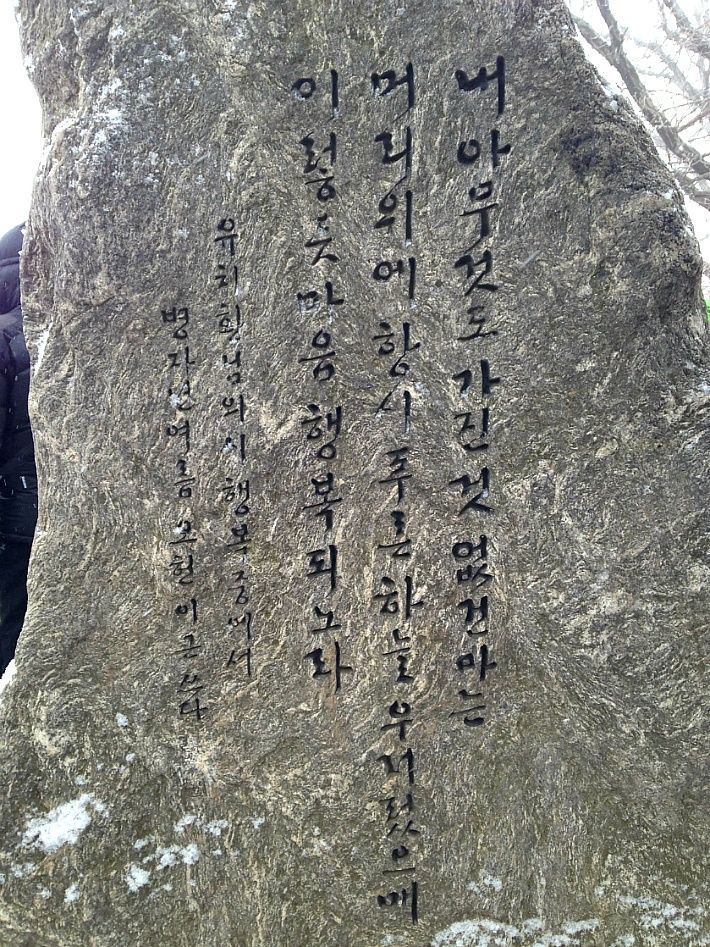 내 아무것도 가진것 없건마는
머리위에 항시 푸른하늘 우러렀으매
이렇듯 마음 행복되노라
유치환님의 시 행복 중에서
병자년 여름 오헌 이근 쓰다